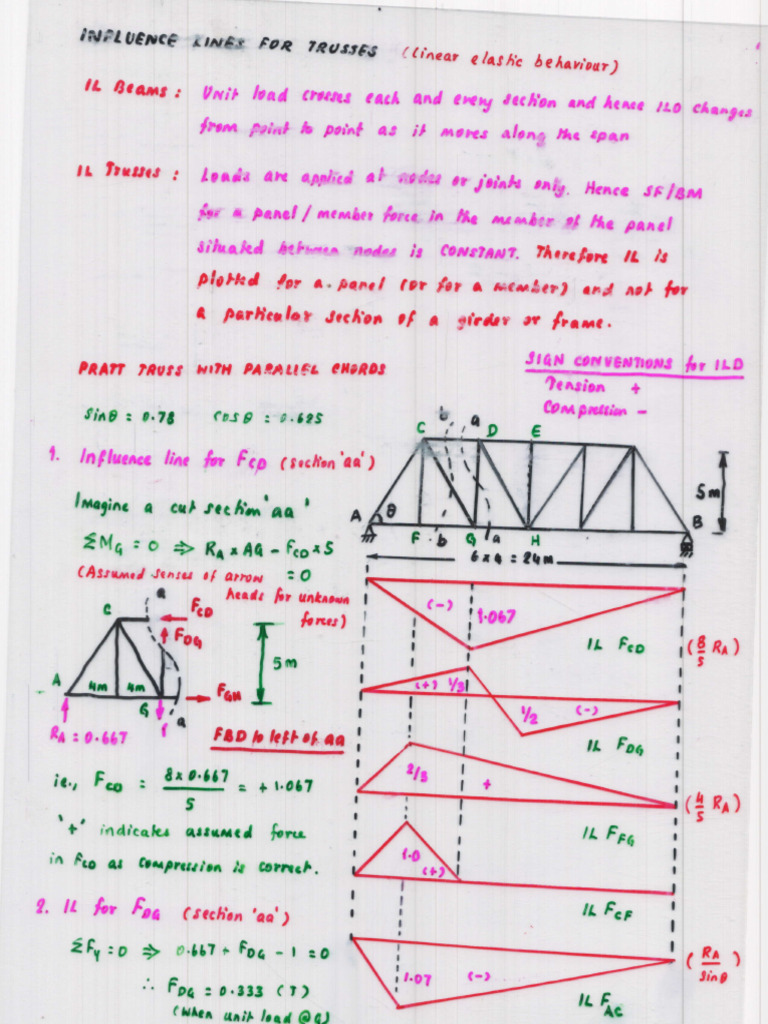 INFLUENCE LINES FOR TRUSSES (Linear elastic behaviour)
IL Beams : Unit load crosses each and every section and hence ILD changes
from point to point as it moves along the span
IL Trusses : Loads are applied at nodes or joints only. Hence SF/BM
for a panel / member force in the member of the panel
situated between nodes is CONSTANT. Therefore IL is
plotted for a panel (or for a member) and not for
a particular section of a girder or frame.
SIGN CONVENTIONS for ILD
Tension +
Compression -
PRATT TRUSS WITH PARALLEL CHORDS
Sinθ = 0.78 Cosθ = 0.625
1. Influence line for FCD (section 'aa')
Imagine a cut section 'aa'
ΣMG = 0 ⇒ RA × AG - FCD × 5
= 0
(Assumed senses of arrow
heads for unknown
forces)
b a
C D E
5m
A θ B
F b G a H
6 x 4 = 24m
a
C FCD
FDG
5m
A 4m 4m FGH
G 1 a
RA = 0.667
FBD to left of aa
ie., FCD = 8 x 0.667 / 5 = + 1.067
'+' indicates assumed force
in FCD as compression is correct.
2. IL for FDG (section 'aa')
ΣFy = 0 ⇒ 0.667 + FDG - 1 = 0
∴ FDG = 0.333 (T)
(When unit load @ G)
(-) 1.067
IL FCD (8/5 RA)
(+) 1/3
1/2 (-)
IL FDG
2/3 +
IL FFG (4/5 RA)
1.0
(+)
IL FCF
1.07 (-)
IL FAC (RA/sinθ)